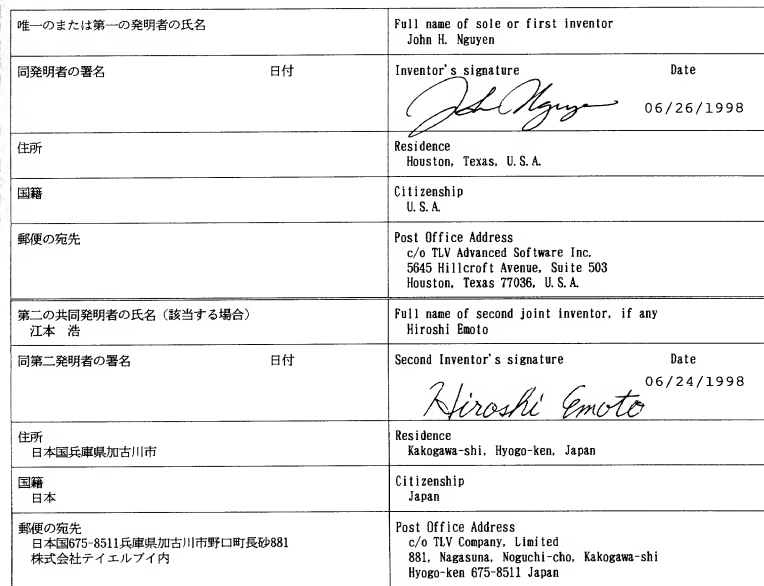 唯一のまたは第一の発明者の氏名
Full name of sole or first inventor
John H. Nguyen
同発明者の署名 日付
Inventor's signature Date
John Nguyen 06/26/1998
住所
Residence
Houston, Texas, U.S.A.
国籍
Citizenship
U.S.A.
郵便の宛先
Post Office Address
c/o TLV Advanced Software Inc.
5645 Hillcroft Avenue, Suite 503
Houston, Texas 77036, U.S.A.
第二の共同発明者の氏名（該当する場合）
江本 浩
Full name of second joint inventor, if any
Hiroshi Emoto
同第二発明者の署名 日付
Second Inventor's signature Date
06/24/1998
Hiroshi Emoto
住所
日本国兵庫県加古川市
Residence
Kakogawa-shi, Hyogo-ken, Japan
国籍
日本
Citizenship
Japan
郵便の宛先
日本国675-8511兵庫県加古川市野口町長砂881
株式会社テイエルブイ内
Post Office Address
c/o TLV Company, Limited
881, Nagasuna, Noguchi-cho, Kakogawa-shi
Hyogo-ken 675-8511 Japan